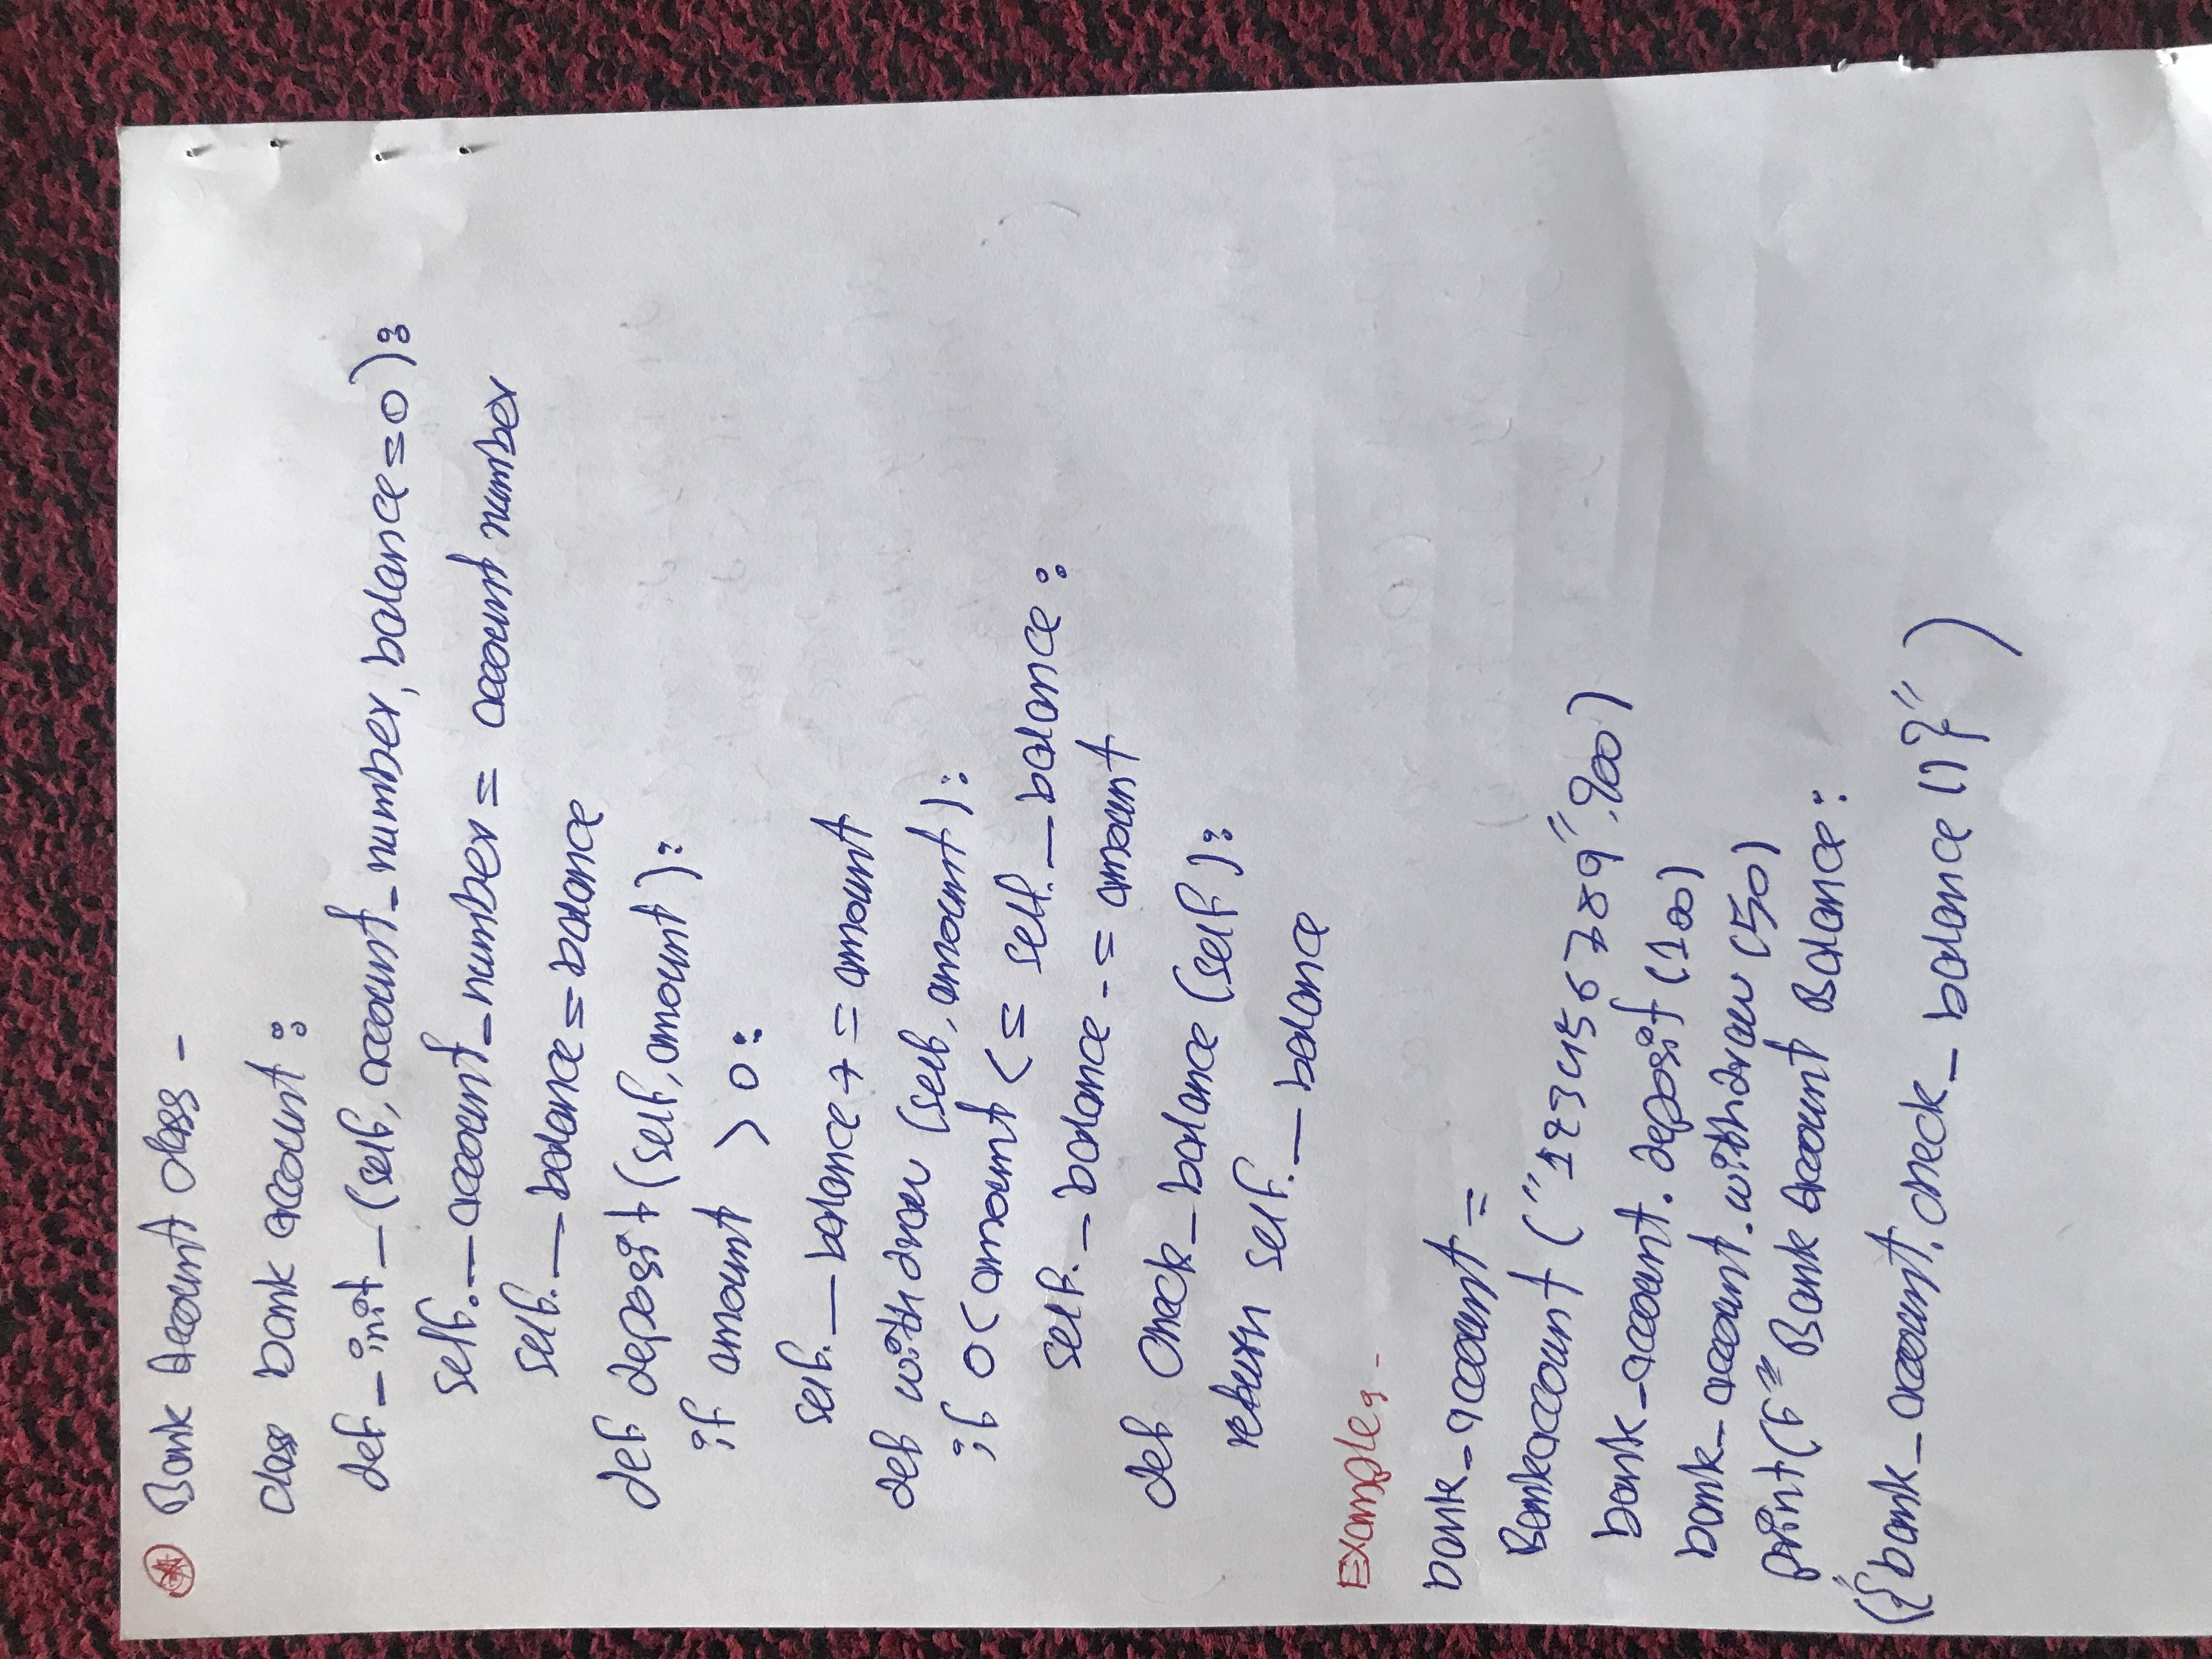 Bank Account class -
class bank account:
def _init_(self, account_number, balance=0):
self._account_number = account number
self._balance=balance
def deposit(self, amount):
if amount > 0:
self._balance += amount
def withdraw (self, amount):
if 0< amount <= self._balance:
self._balance -= amount
def check_balance (self):
return self._balance
Example:-
bank_account =
Bankaccount ("123456789",900)
bank_account.deposit(100)
bank_account.withdraw (50)
print(f" Bank Account Balance:
("{bank_account.check_balance()}")